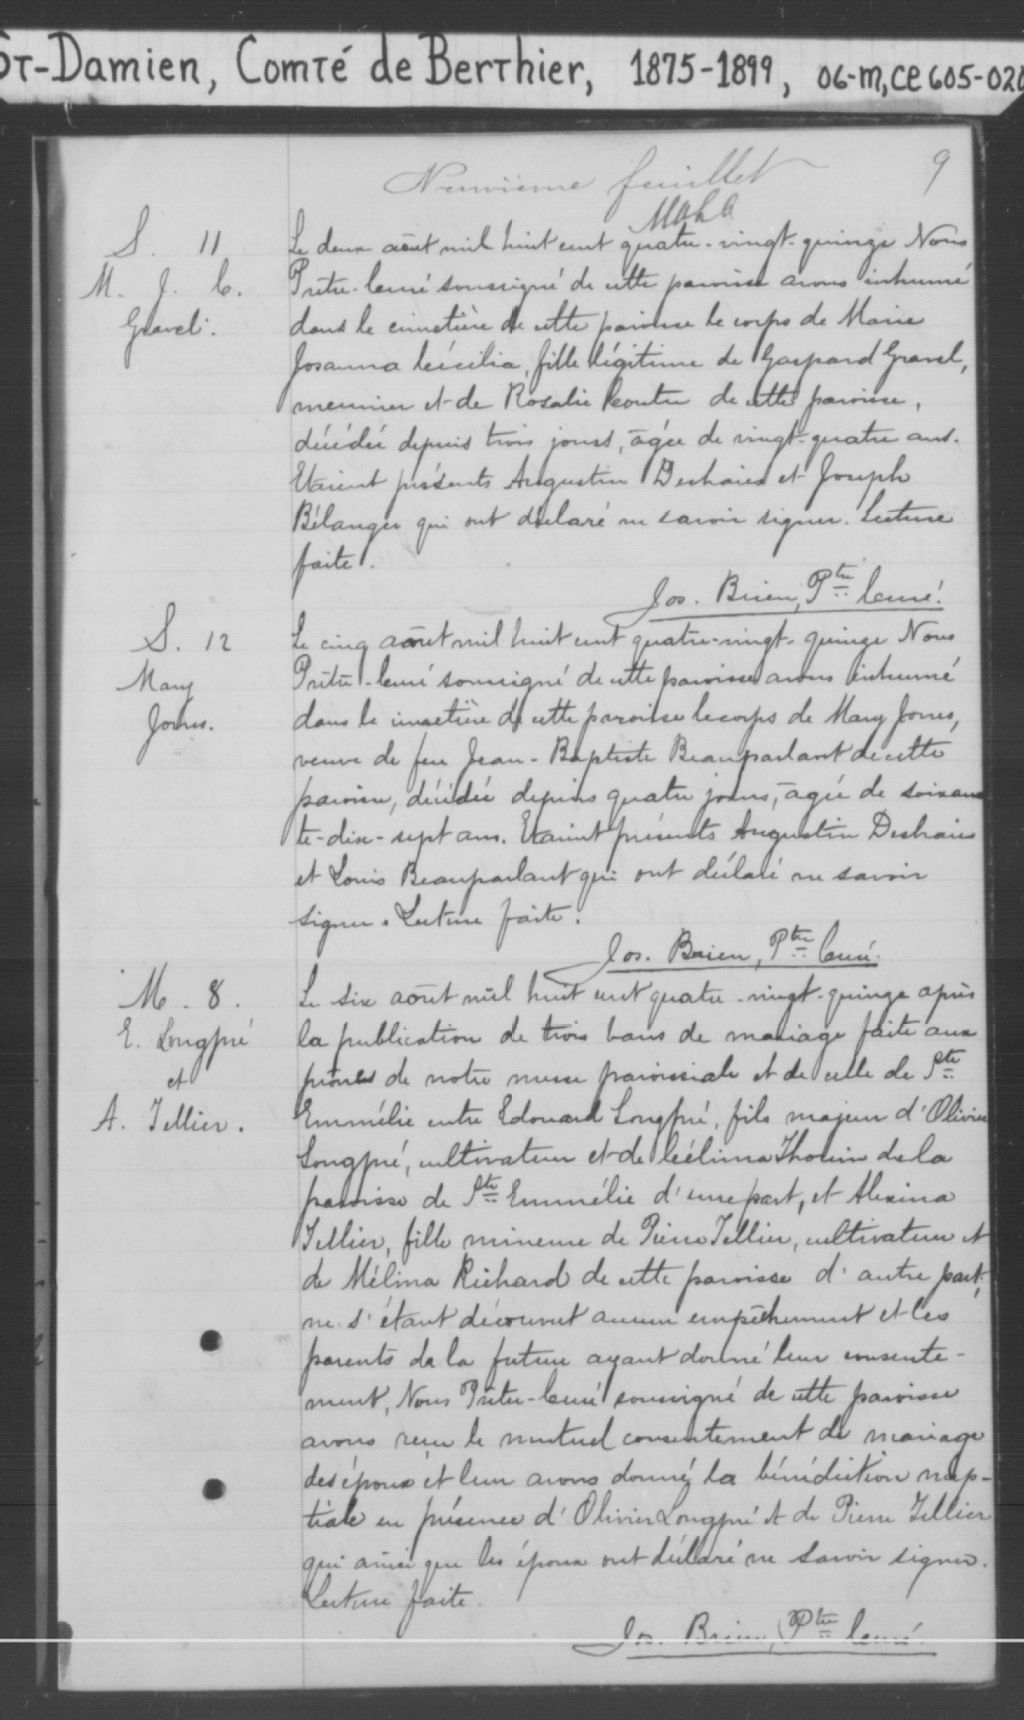 St-Damien, Comté de Berthier, 1875-1899, 06-M, CE605-020
Neuvième feuillet
9
S. 11
M. J. C.
Gravel.
Le deux août mil huit cent quatre-vingt-quinze Nous
Prêtre-Curé soussigné de cette paroisse avons inhumé
dans le cimetière de cette paroisse le corps de Marie
Josanna Cécilia, fille légitime de Gaspard Gravel,
meunier et de Rosalie Coutu de cette paroisse,
décédée depuis trois jours, âgée de vingt-quatre ans.
Etaient présents Augustin Deshaies et Joseph
Bélanger qui ont déclaré ne savoir signer. Lecture
faite.
Jos. Brien, Ptre Curé.
S. 12
Mary
Jones.
Le cinq août mil huit cent quatre-vingt-quinze Nous
Prêtre-Curé soussigné de cette paroisse avons inhumé
dans le cimetière de cette paroisse le corps de Mary Jones,
veuve de feu Jean-Baptiste Beauparlant de cette
paroisse, décédée depuis quatre jours, âgée de soixan
te-dix-sept ans. Etaient présents Augustin Deshaies
et Louis Beauparlant qui ont déclaré ne savoir
signer. Lecture faite.
Jos. Brien, Ptre Curé.
M. 8.
E. Longpré
et
A. Tellier.
Le six août mil huit cent quatre-vingt-quinze après
la publication de trois bans de mariage faite aux
prônes de notre messe paroissiale et de celle de Ste
Emmélie entre Edouard Longpré, fils majeur d'Olivier
Longpré, cultivateur et de Célima Thouin de la
paroisse de Ste Emmélie d'une part, et Alexina
Tellier, fille mineure de Pierre Tellier, cultivateur et
de Mélina Richard de cette paroisse d'autre part,
ne s'étant découvert aucun empêchement et les
parents de la future ayant donné leur consente-
ment, Nous Prêtre-Curé soussigné de cette paroisse
avons reçu le mutuel consentement de mariage
des époux et leur avons donné la bénédiction nup-
tiale en présence d'Olivier Longpré et de Pierre Tellier
qui ainsi que les époux ont déclaré ne savoir signer.
Lecture faite.
Jos. Brien, Ptre Curé.